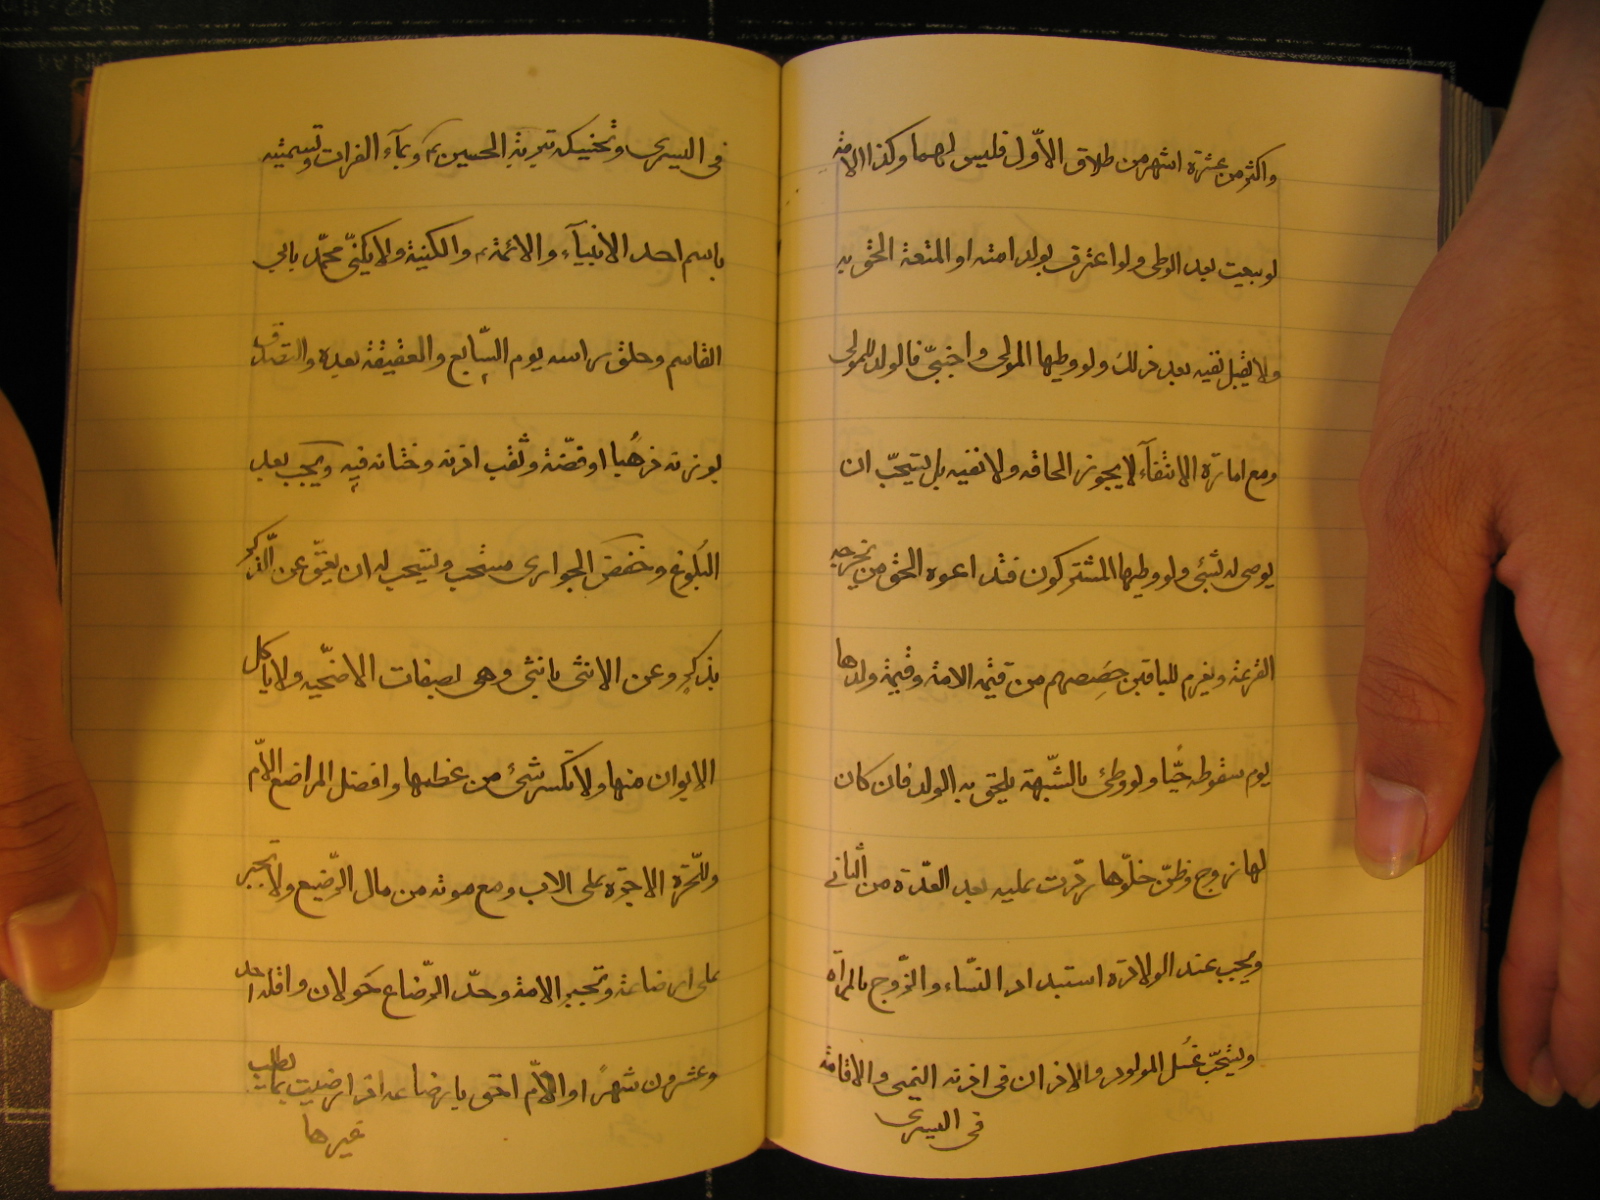 واكثر من عشرة اشهر من طلاق الاّول فليس لهما وكذا الامة
لو بيعت بعد الوطى ولو اعترف بولد امته او المتعة الحق به
ولا يقبل نفيه بعد ذلك ولو وطيها المولى واجنبىّ فالولد للمولى
ومع امارة الانتفآء لا يجوز الحاقه ولا نفيه بل يستحبّ ان
يوصى له بشئ ولو وطيها المشتركون فتداعوه الحق من يخرجه
القرعة ويغرم للباقين حِصَصهم من قيمة الامة وقيمة ولدها
يوم سقوطه حيّا ولو وطئ بالشّبهة يلحق به الولد فان كان
لها زوج وظنّ خلّوها ردّت عليه بعد العدّة من الثانى
ويجب عند الولادة استبداد النّساء والزّوج بالمرأة
ويستحبّ غُسل المولود والاذان فى اذنه اليمنى والاقامة
فى اليسرى
فى اليسرى وتحنيكه بتربة الحسين ع وبمآء الفرات وتسميته
باسم احد الانبيآء والائمة ع والكنية ولا يكنّى محمّد بابى
القاسم وحلق راسه يوم السّابع والعقيقة بعده والتصدق
بوزنه ذهبًا او فضّة وثقب اذنه وختانه فيه ويجب بعد
البُلوغ وخفض الجوارى مستحب ويستحب له ان يعقّ عن الذّكر
بذكرٍ وعن الانثى بانثى وهى بصفات الاضحّيه ولا ياكل
الابوان منها ولا تكسر شئ من عظمها وافضل المراضع الاّم
وللحّرة الاجرة على الاب ومع موته من مال الرّضيع ولا تجبر
على ارضاعه وتجبر الامة وحدّ الرّضاع حَولان واقله احد
وعشرون شهرًا والاّم احق بارضاعه اذا رضيت بما تطلب
غيرها